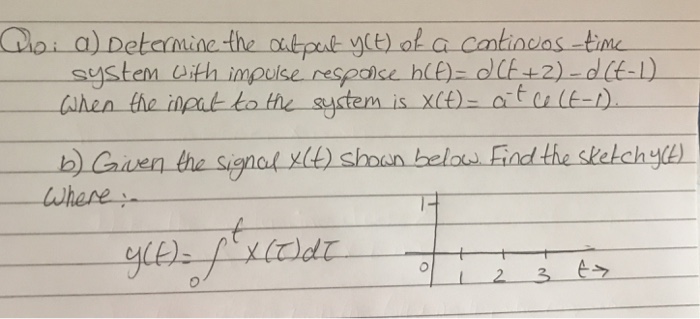 Q10: a) Determine the output y(t) of a continuos-time
system with impulse response h(t)= d(t+2)-d(t-1)
when the input to the system is x(t)= a^-t u(t-1).
b) Given the signal x(t) shown below. Find the sketch y(t)
Where :-
y(t)= ∫₀ᵗ x(τ)dτ
1
0 1 2 3 t→